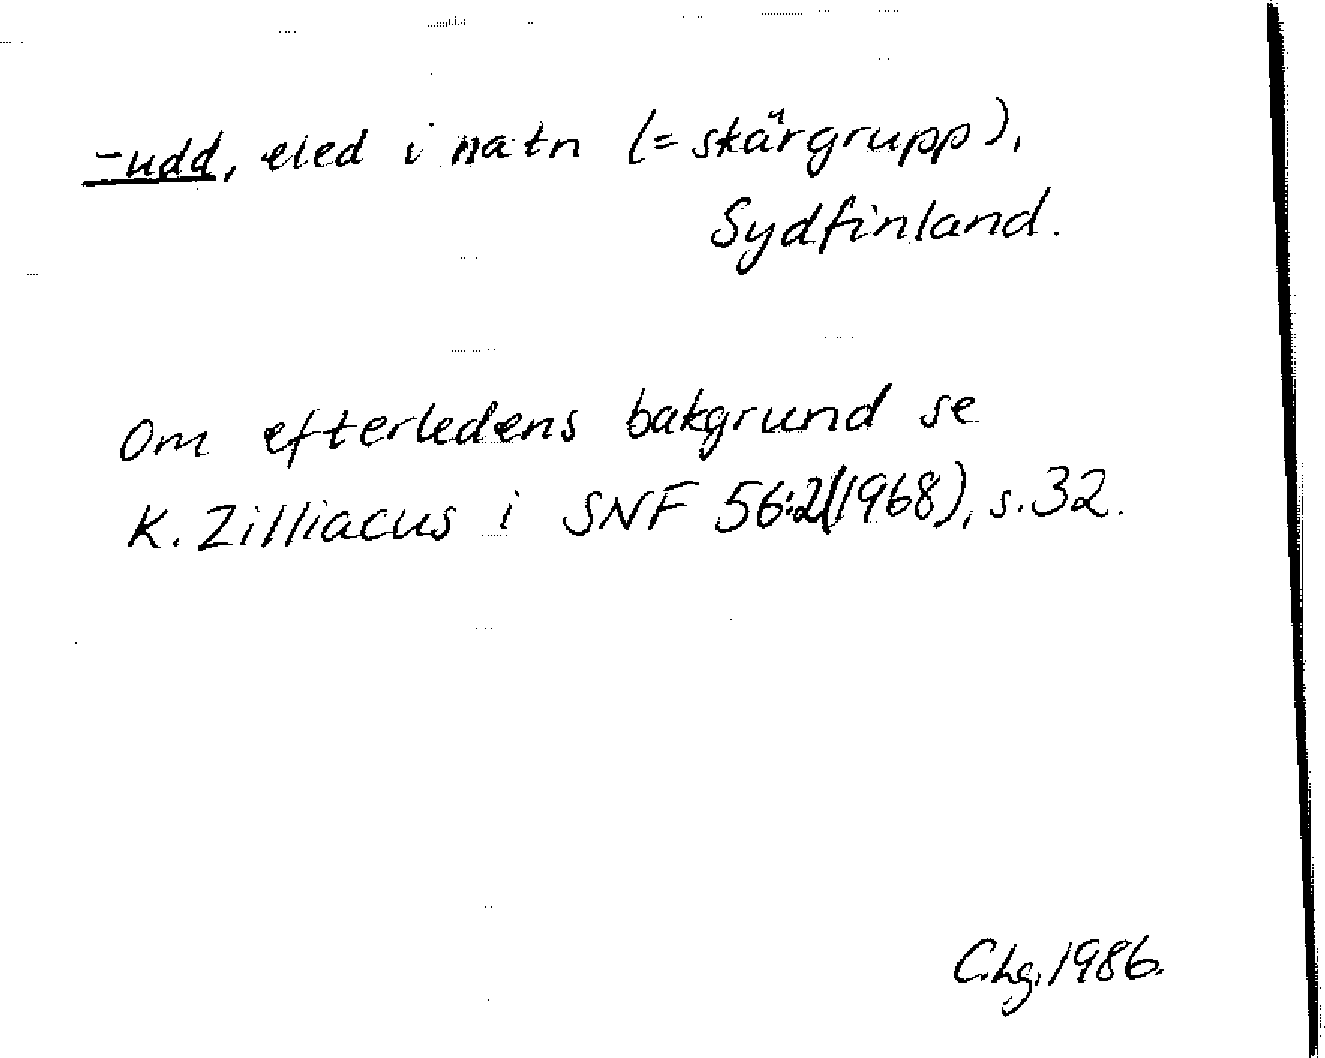 -udd, eled i natn (= skärgrupp),
Sydfinland.
Om efterledens bakgrund se
K. Zilliacus i SNF 56:2(1968), s. 32.
C.hg. 1986.